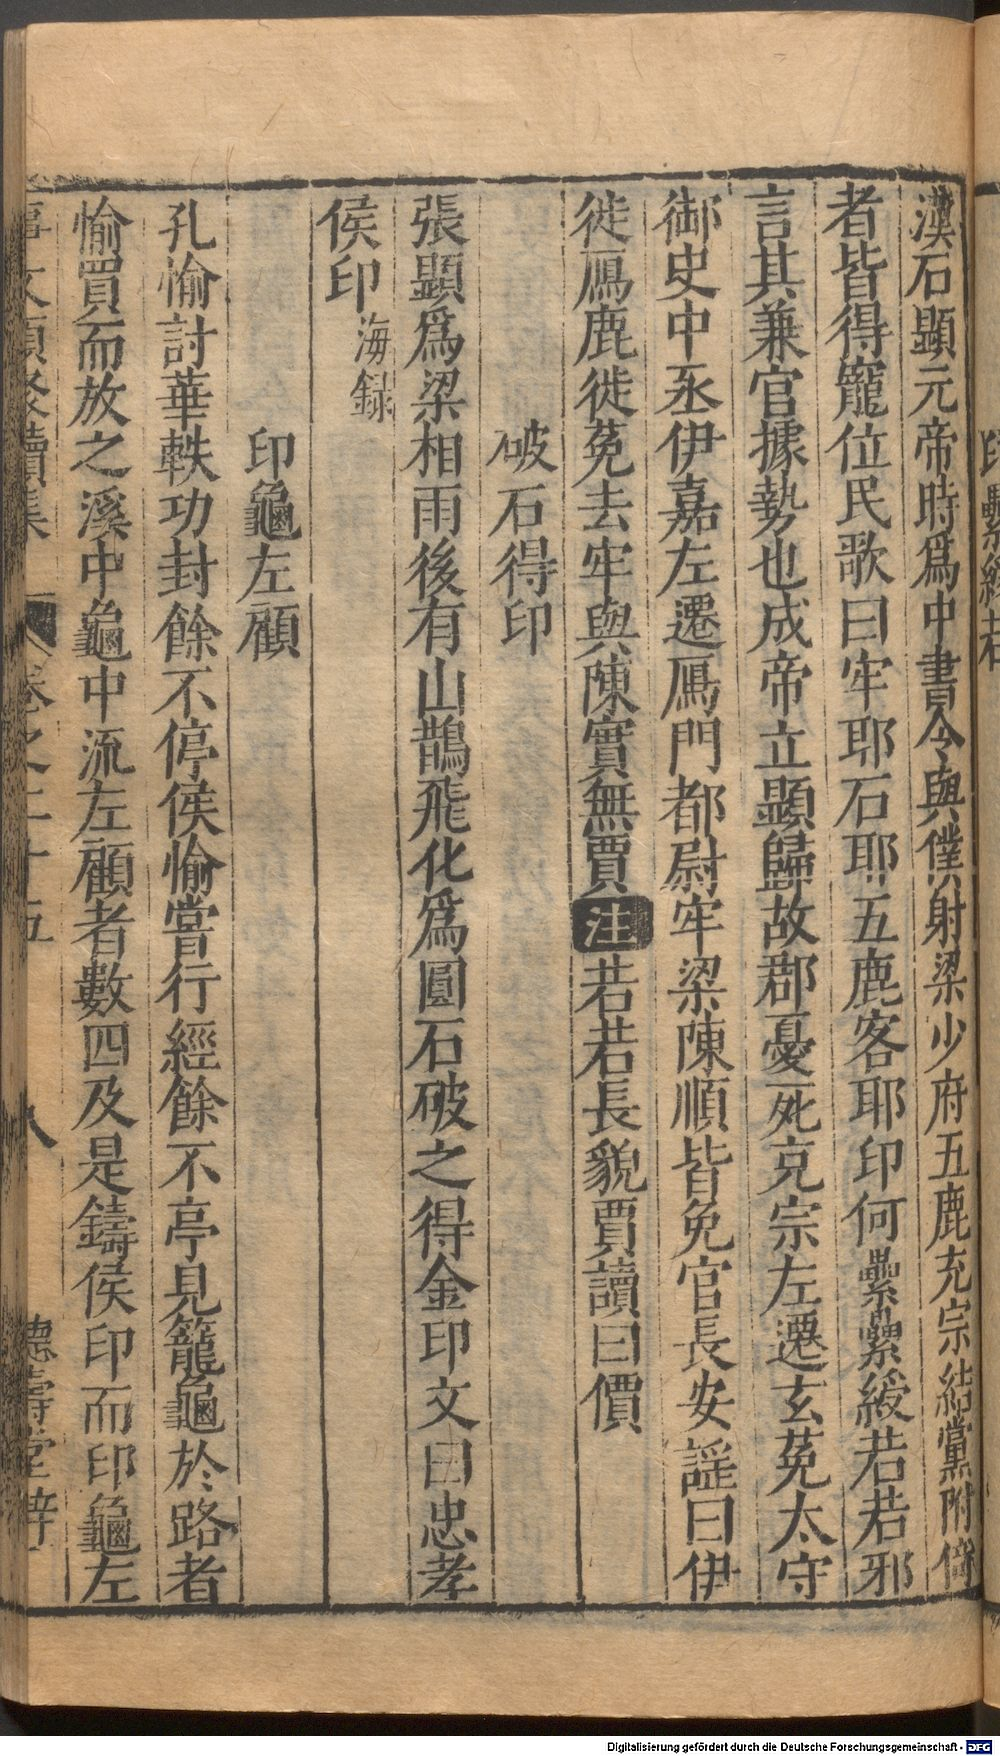 漢石顯元帝時爲中書令與僕射梁少府五鹿充宗結黨附倚
者皆得寵位民歌曰牢耶石耶五鹿客耶印何纍纍綬若若邪
言其兼官據勢也成帝立顯歸故郡憂死克宗左遷玄莬太守
御史中丞伊嘉左遷鴈門都尉牢梁陳順皆免官長安謡曰伊
徙鴈鹿徙莬去牢與陳實無賈注若若長貌賈讀曰價
破石得印
張顥爲梁相雨後有山鵲飛化爲圓石破之得金印文曰忠孝
侯印海録
印龜左顧
孔愉討華軼功封餘不停侯愉嘗行經餘不亭見籠龜於路者
愉買而放之溪中龜中流左顧者數四及是鑄侯印而印龜左
事文類聚續集 卷之二十五 八 德壽堂梓
Digitalisierung gefördert durch die Deutsche Forschungsgemeinschaft - DFG